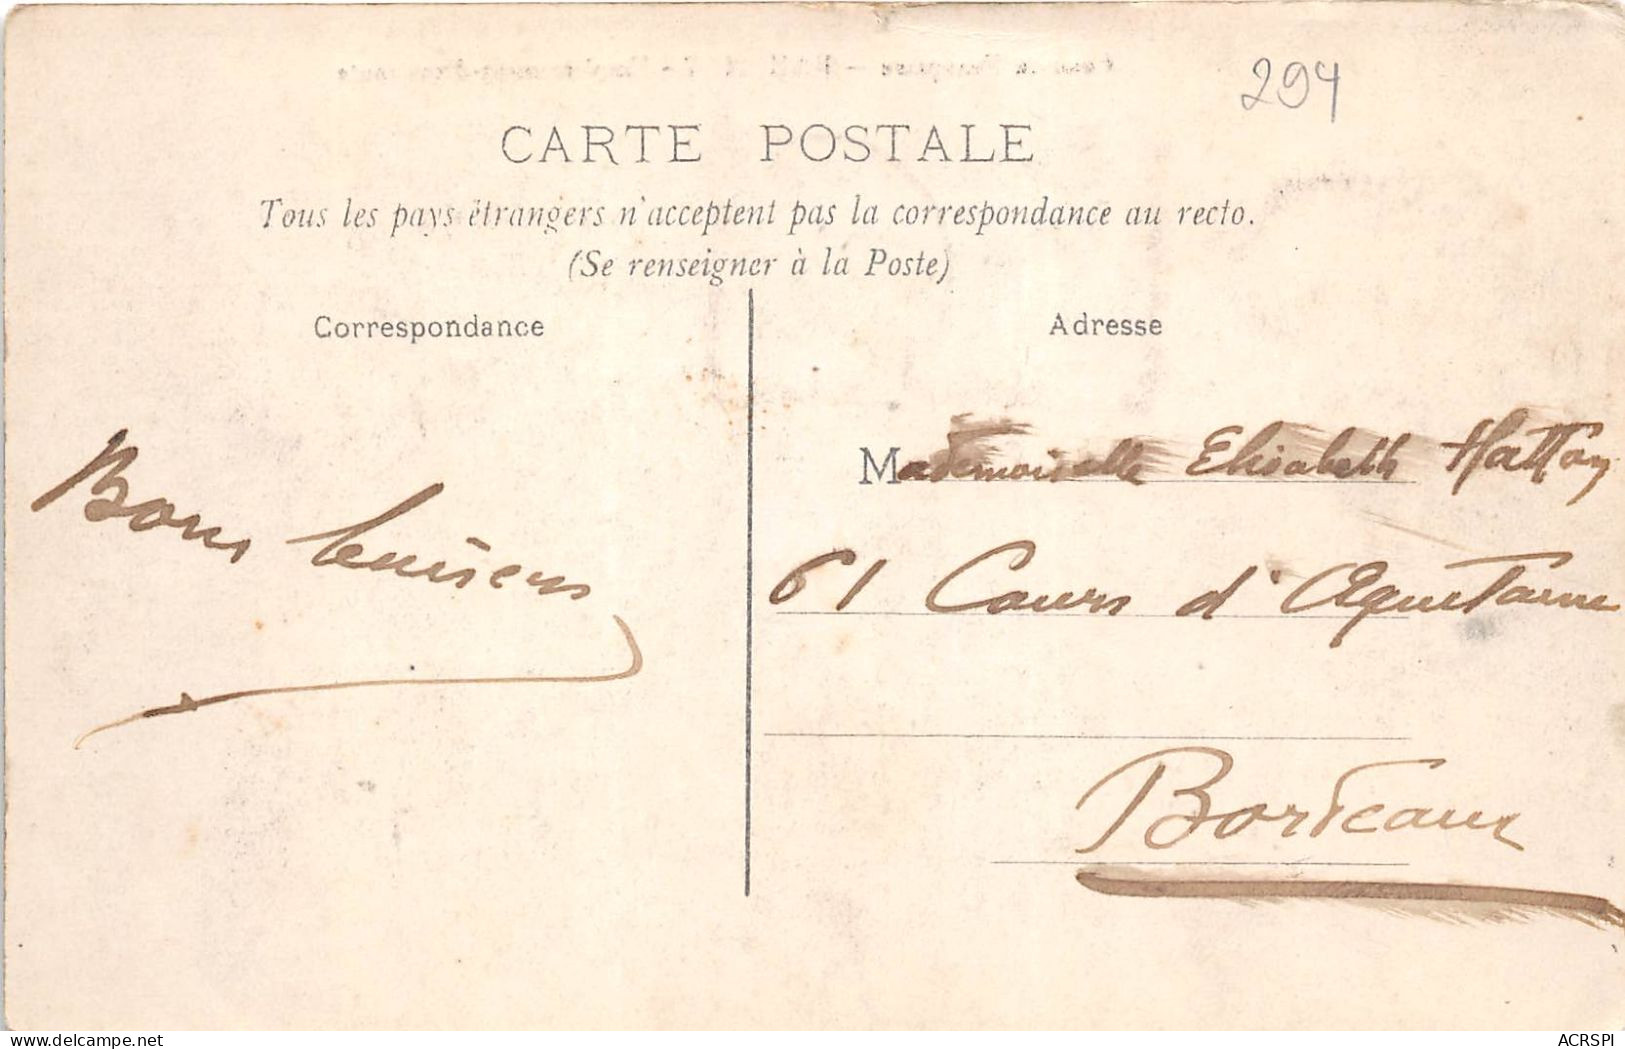 294
CARTE POSTALE
Tous les pays étrangers n'acceptent pas la correspondance au recto.
(Se renseigner à la Poste)
Correspondance
Adresse
Bons baisers
Mademoiselle Elisabeth Hattay
61 Cours d'Aquitaine
Bordeaux
ACRSPI